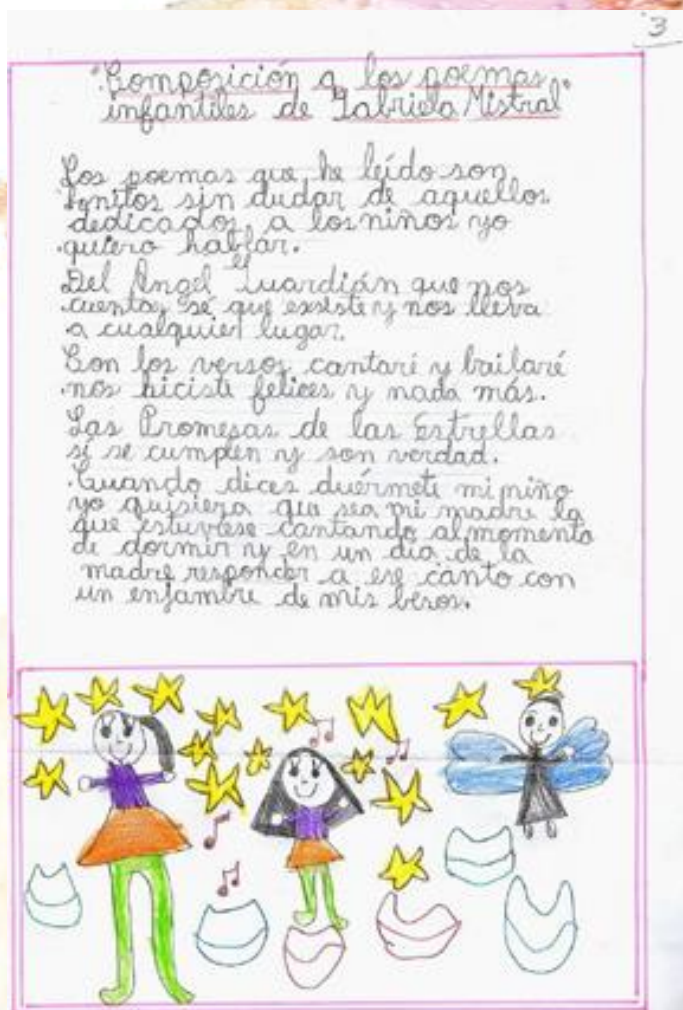 3
"Composición a los poemas
infantiles de Gabriela Mistral"
Los poemas que he leído son
bonitos sin dudar de aquellos
dedicados a los niños yo
quiero hablar.
Del Ángel Guardián que nos
cuenta, sé que existe y nos lleva
a cualquier lugar.
Con los versos cantaré y bailaré
nos hiciste felices y nada más.
Las Promesas de las Estrellas
sí se cumplen y son verdad.
Cuando dices duérmete mi niño
yo quisiera que sea mi madre la
que estuviese cantando al momento
de dormir y en un día de la
madre responder a ese canto con
un enjambre de mis besos.